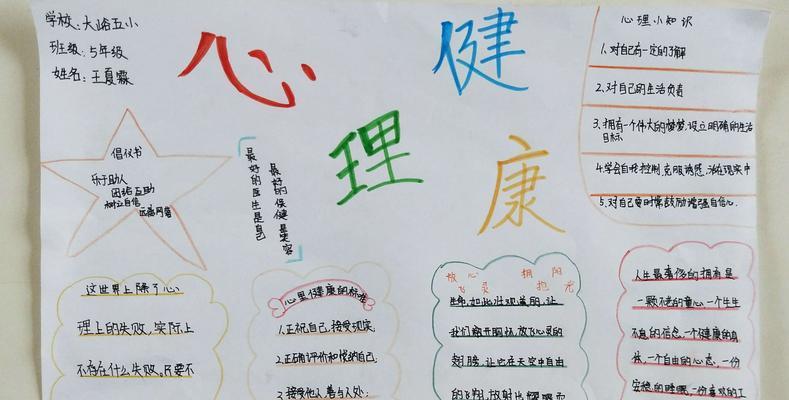 学校:大峪五小
班级:5年级
姓名:王夏霖
心
理
健
康
心理小知识
1、对自己有一定的了解
2、对自己的生活负责
3、拥有一个伟大的梦梦,设立明确的生活
目标
4.学会自我控制,克服诱惑,活在现实中
5.对自己要时常鼓励增强自信心.
倡仪书
乐于助人
团结互助
树立自信
远离网瘾
最好的医生是自己
这世界上除了心
理上的失败,实际上
不存在什么失败。只要不
心里健康的标准
1.正视自己,接受现实;
2.正确评价和悦纳自己;
3.接受他人,善与人处;
放心 拥阳
飞灵 抱光
生命如此壮观美丽,让
我们敞开胸怀,放飞心灵的
翅膀,让它在天空中自由
的飞翔,放射出耀眼而
人生最奢侈的拥有是
一颗不老的童心,一个生生
不息的信念,一个健康的身
体,一个自由的心态,一份
安稳的睡眠,一份喜欢的工